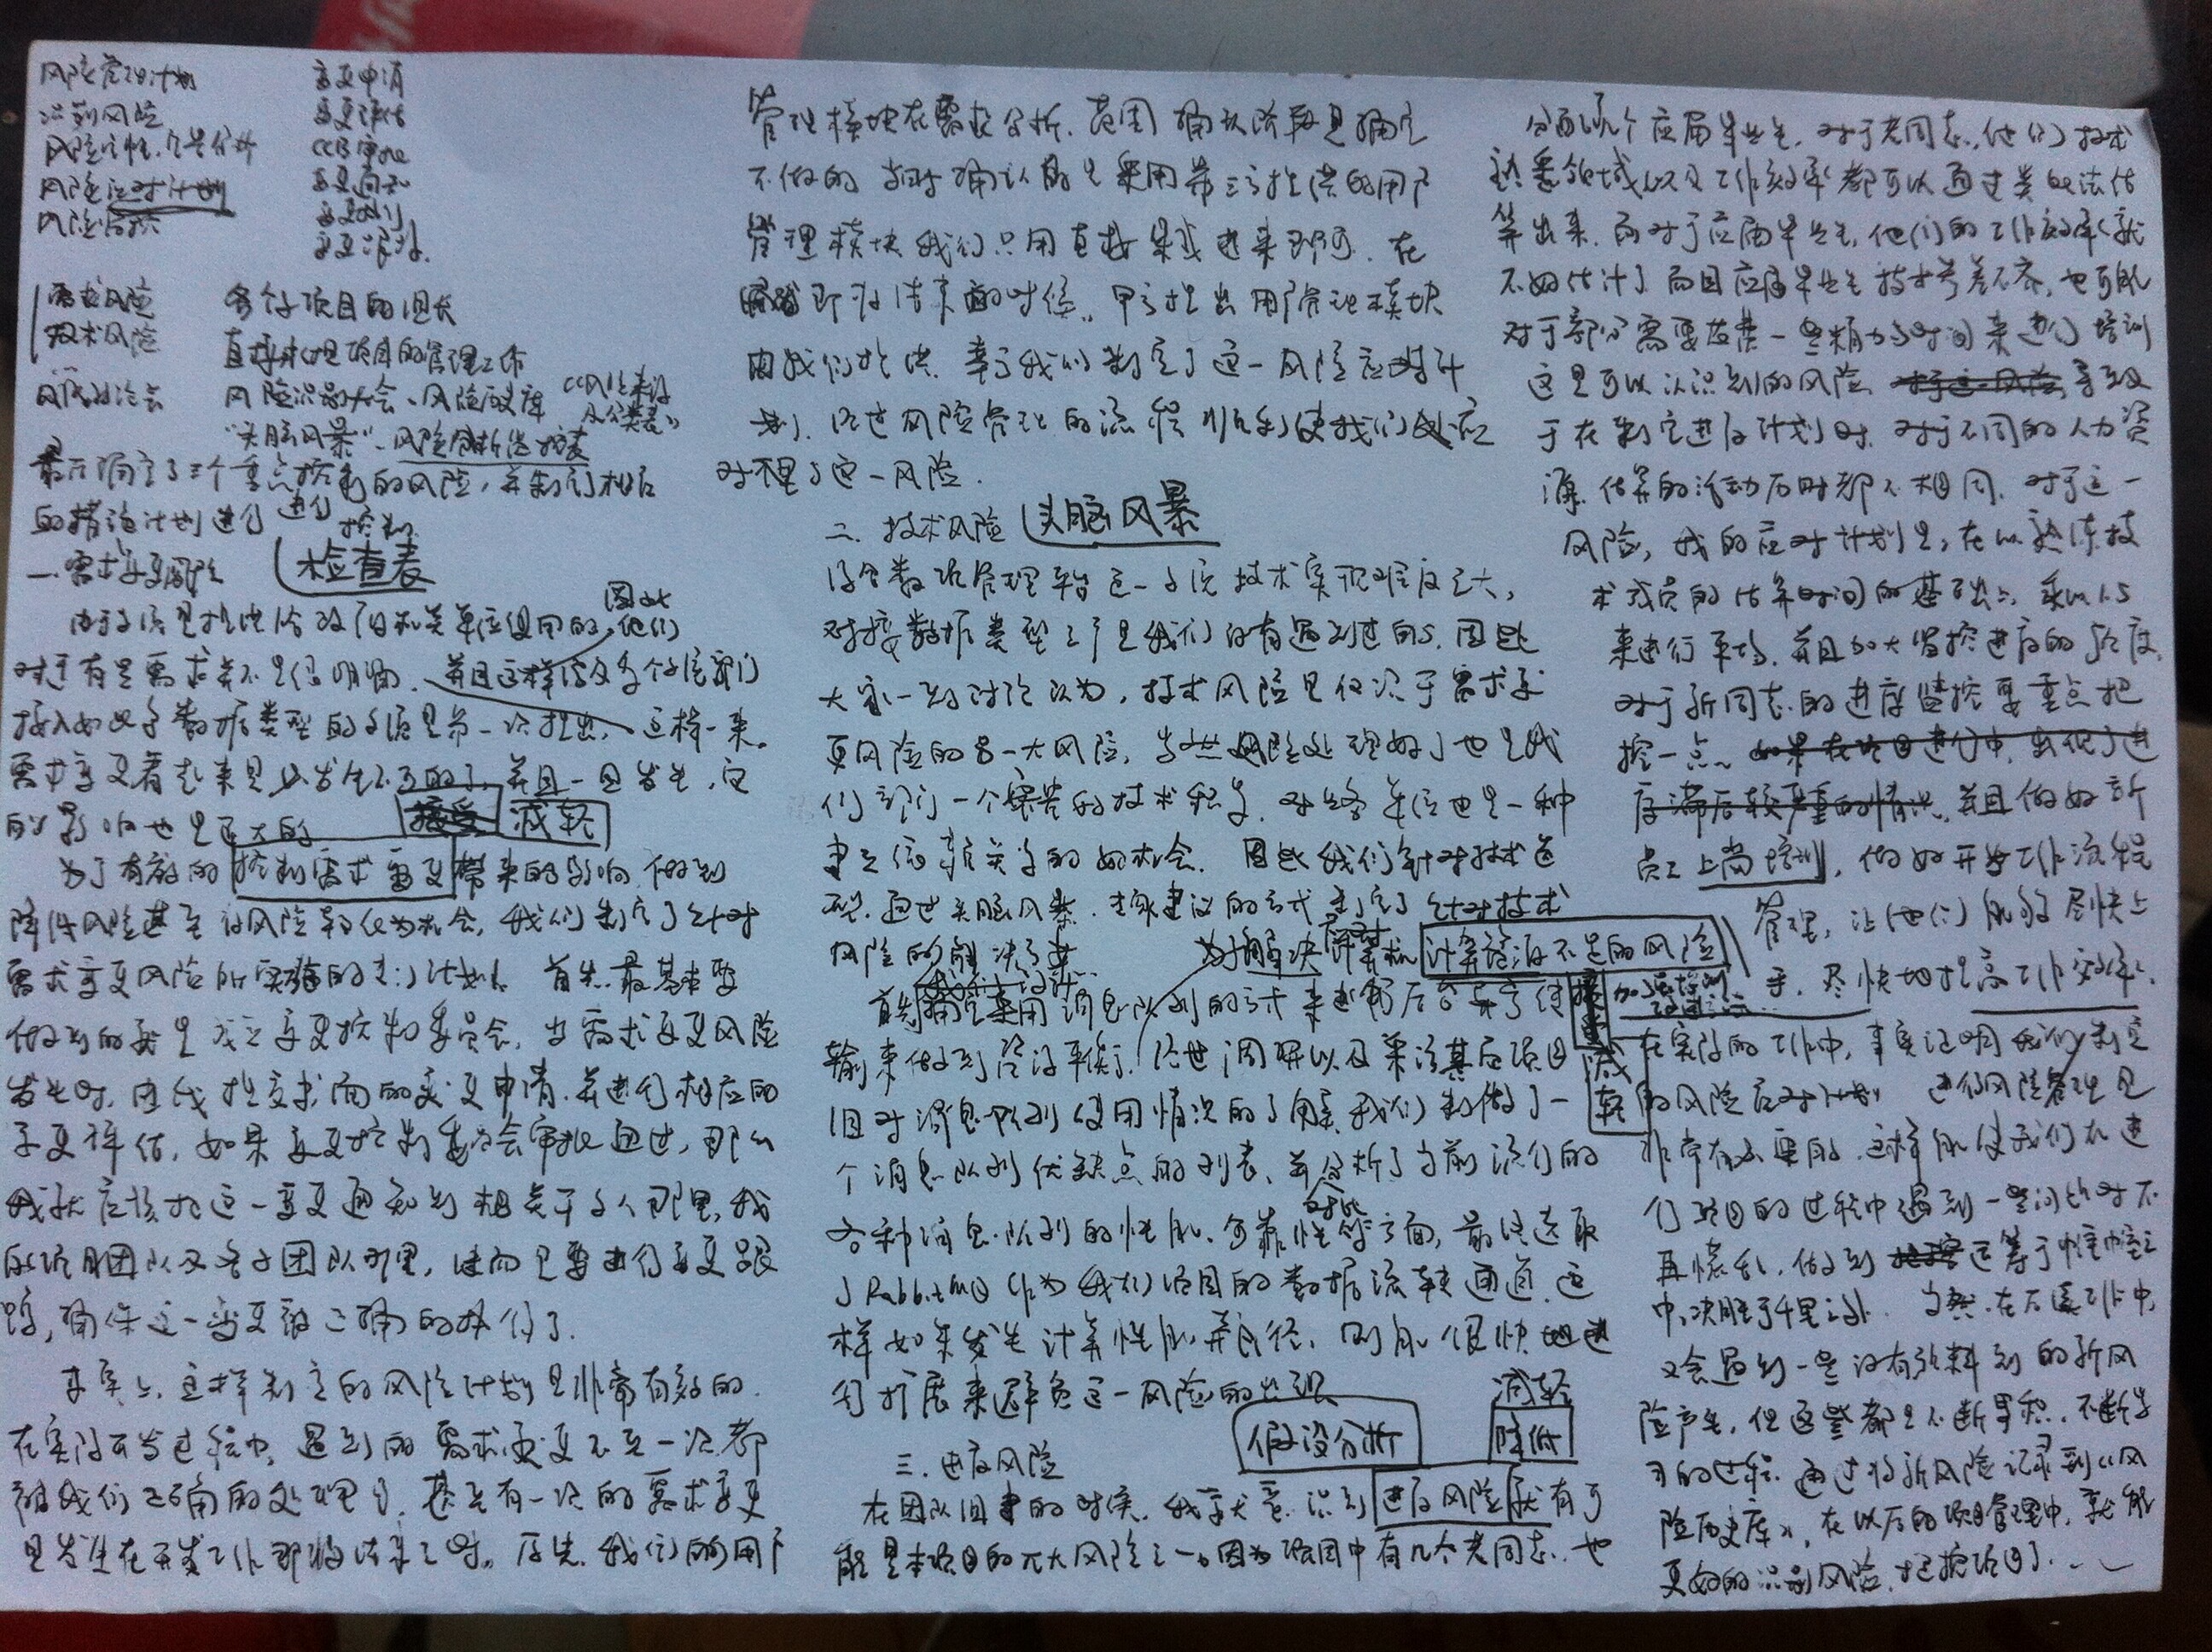 风险管理计划
识别风险
风险定性、定量分析
风险应对计划
风险监控
变更申请
变更评估
CCB审批
变更通知
变更执行
变更跟踪
需求风险
技术风险
各个项目的组长
直接 项目的管理工作
风险识别大会、风险历史库
"头脑风暴"、风险
最后确定了三个重点控制的风险,并制订相应
的措施计划进行控制
一、需求变更风险 检查表
由于系统是提供给政府机关单位使用的,因此他们
对于有些需求并不是很明确,并且这样涉及多个 部门
接入如此多数据类型的系统是第一次推出,这样一来,
需求变更看起来是必发生不可的了,并且一旦发生,它
的影响也是巨大的 接受 减轻
为了有效的控制需求变更带来的影响,做到
降低风险甚至将风险转化为机会,我们制定了针对
需求变更风险所实施的专门计划。首先最基本要
做到的就是成立变更控制委员会,当需求变更风险
发生时,由我提交书面的变更申请,并进行相应的
变更评估,如果变更控制委员会审批通过,那么
我就应该把这一变更通知到相关干系人那里,我
的项目团队及各子团队那里,进而是要进行变更跟
踪,确保这一变更被正确的执行了.
事实上,这样制定的风险计划是非常有效的.
在实际开发过程中,遇到的需求变更不止一次都
被我们正确的处理了.甚至有一次的需求变更
是发生在开发工作即将结束之时。原先,我们的用户
管理模块在需求分析、范围确认阶段是确定
不做的,当时确认的是采用第三方提供的用户
管理模块我们只用直接集成进来即可.在
即将结束的时候,甲方提出用户管理模块
由我们提供.幸亏我们制定了这一风险应对计
划.经过风险管理的流程顺利使我们 应
对 了这一风险.
二、技术风险 头脑风暴
综合数据管理平台这一系统技术实现难度之大,
对接数据类型之广是我们没有遇到过的.因此
大家一致讨论认为,技术风险是仅次于需求变
更风险的另一大风险,当然风险处理好了也是我
们部门一个宝贵的技术积累,对 单位也是一种
建立信赖关系的好机会.因此我们针对技术选
型,通过头脑风暴,专家建议的方式制定了针对技术
风险的解决方案. 为了解决 计算资源不足的风险
首先 采用消息队列的方式来进行后台
输来做到 ,经过调研以及 其它项目
组对消息队列使用情况的了解,我们制做了一
个消息队列优缺点的列表,并分析了当前流行的
各种消息队列的性能、可靠性等方面,对比 最终选取
了RabbitMQ作为我们项目的数据流转通道.这
样如果发生计算性能 ,则能很快地进
行扩展来避免这一风险的出现
三、进度风险 假设分析 减轻 降低
在团队组建的时候,我 意识到进度风险就有可
能是本项目的 大风险之一。因为项目中有几个老同志,也
分配了几个应届毕业生.对于老同志,他们技术
熟悉领域以及工作效率都可以通过类比法估
算出来.而对于应届毕业生,他们的工作效率就
不好估计了.而且应届毕业生技术参差不齐,也可能
对于部分需要花费一些精力与时间来进行培训
这是可以认识到的风险
于在制定进度计划时,对于不同的人力资
源,估算的活动历时都不相同.对于这一
风险,我的应对计划是,在以熟练技
术成员的估算时间的基础上,乘以1.5
来进行 ,并且加大监控进度的 度,
对于新同志的进度监控要重点把
控一点. 如果在项目进行中,出现了进
度滞后较严重的情况,并且做好新
员工上岗培训,做好开发工作流程
管理,让他们能够尽快上
手,尽快地提高工作效率.
在实际的工作中,事实证明我们制定
减轻
的风险应对计划 进行风险管理是
非常有必要的.这样能使我们在进
行项目的过程中遇到一些问题时不
再慌乱,做到 运筹于帷幄之
中,决胜于千里之外.当然,在后续工作中,
又会遇到一些没有预料到的新风
险产生,但这些都是不断累积、不断学
习的过程.通过将新风险记录到《风
险历史库》,在以后的项目管理中,就能
更好的识别风险,把控项目.